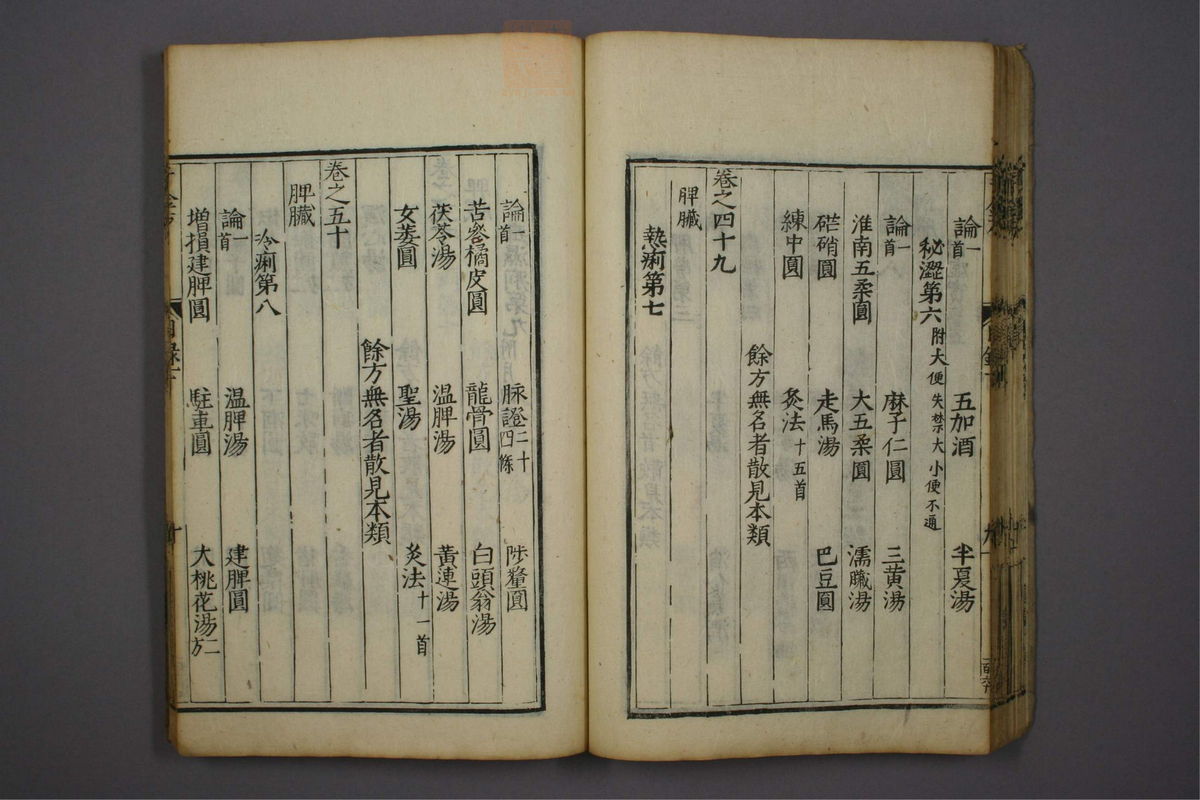 論一首 五加酒 半夏湯
秘澀第六附大便失禁大小便不通
論一首 麻子仁圓 三黃湯
淮南五柔圓 大五柔圓 濡臓湯
硭硝圓 走馬湯 巴豆圓
練中圓 灸法十五首
餘方無名者散見本類
卷之四十九
脾臟
熱痢第七
論一首 脉證二十四條 陟釐圓
苦參橘皮圓 龍骨圓 白頭翁湯
茯苓湯 温脾湯 黃連湯
女萎圓 聖湯 灸法十一首
餘方無名者散見本類
卷之五十
脾臟
冷痢第八
論一首 温脾湯 建脾圓
增損建脾圓 駐車圓 大桃花湯二方